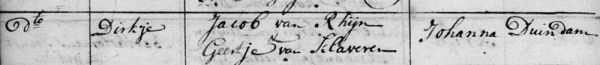 dto Dirkje Jacob van Rhijn Johanna Duindam
Geertje van Klaveren